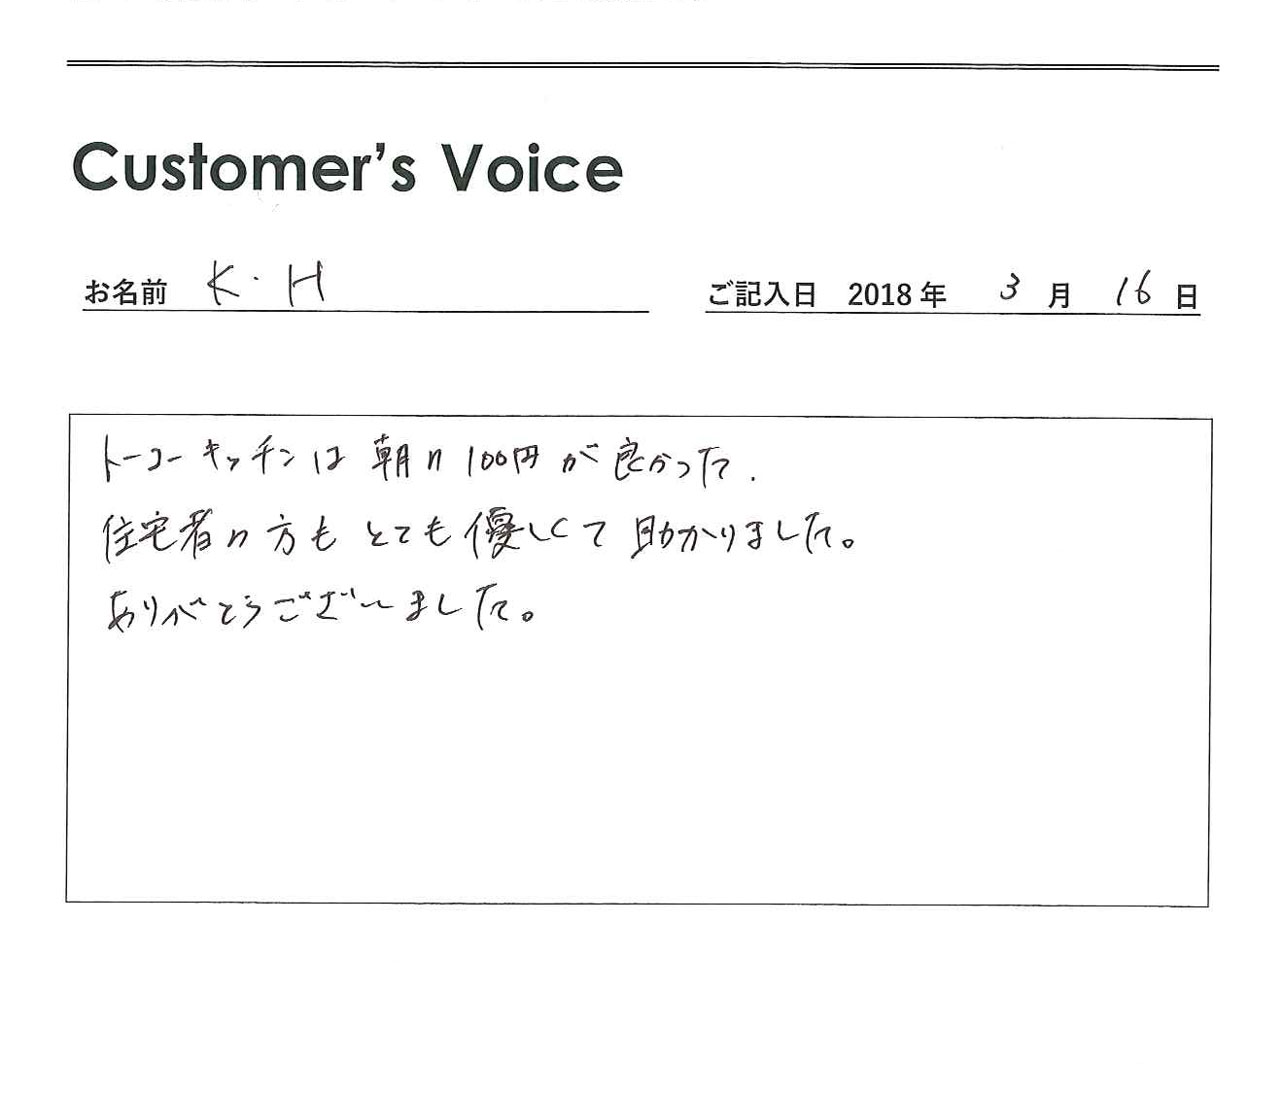 Customer's Voice
お名前 K・H
ご記入日 2018年 3月 16日
トーコーキッチンは朝の100円が良かった.
住宅者の方もとても優しくて助かりました。
ありがとうございました。